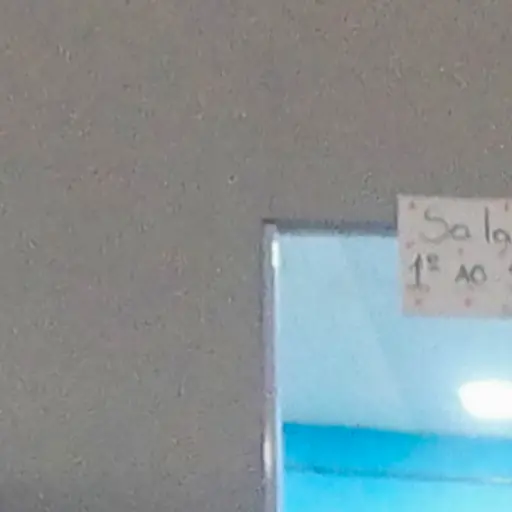 Sala
1º AO